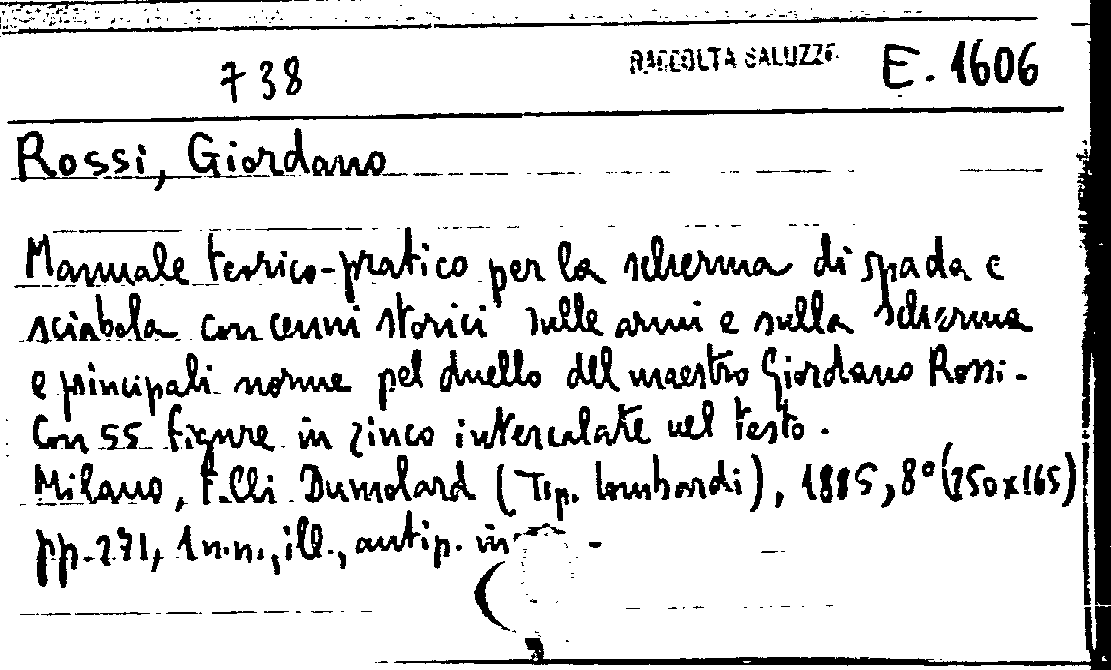 738 RACCOLTA SALUZZO E. 1606
Rossi, Giordano
Manuale teorico-pratico per la scherma di spada e
sciabola con cenni storici sulle armi e sulla scherma
e principali norme pel duello del maestro Giordano Rossi.
Con 55 figure in zinco intercalate nel testo.
Milano, F.lli Dumolard (Tip. Lombardi), 1885, 8° (250x165)
pp. 271, 1 n.n., ill., antip. in